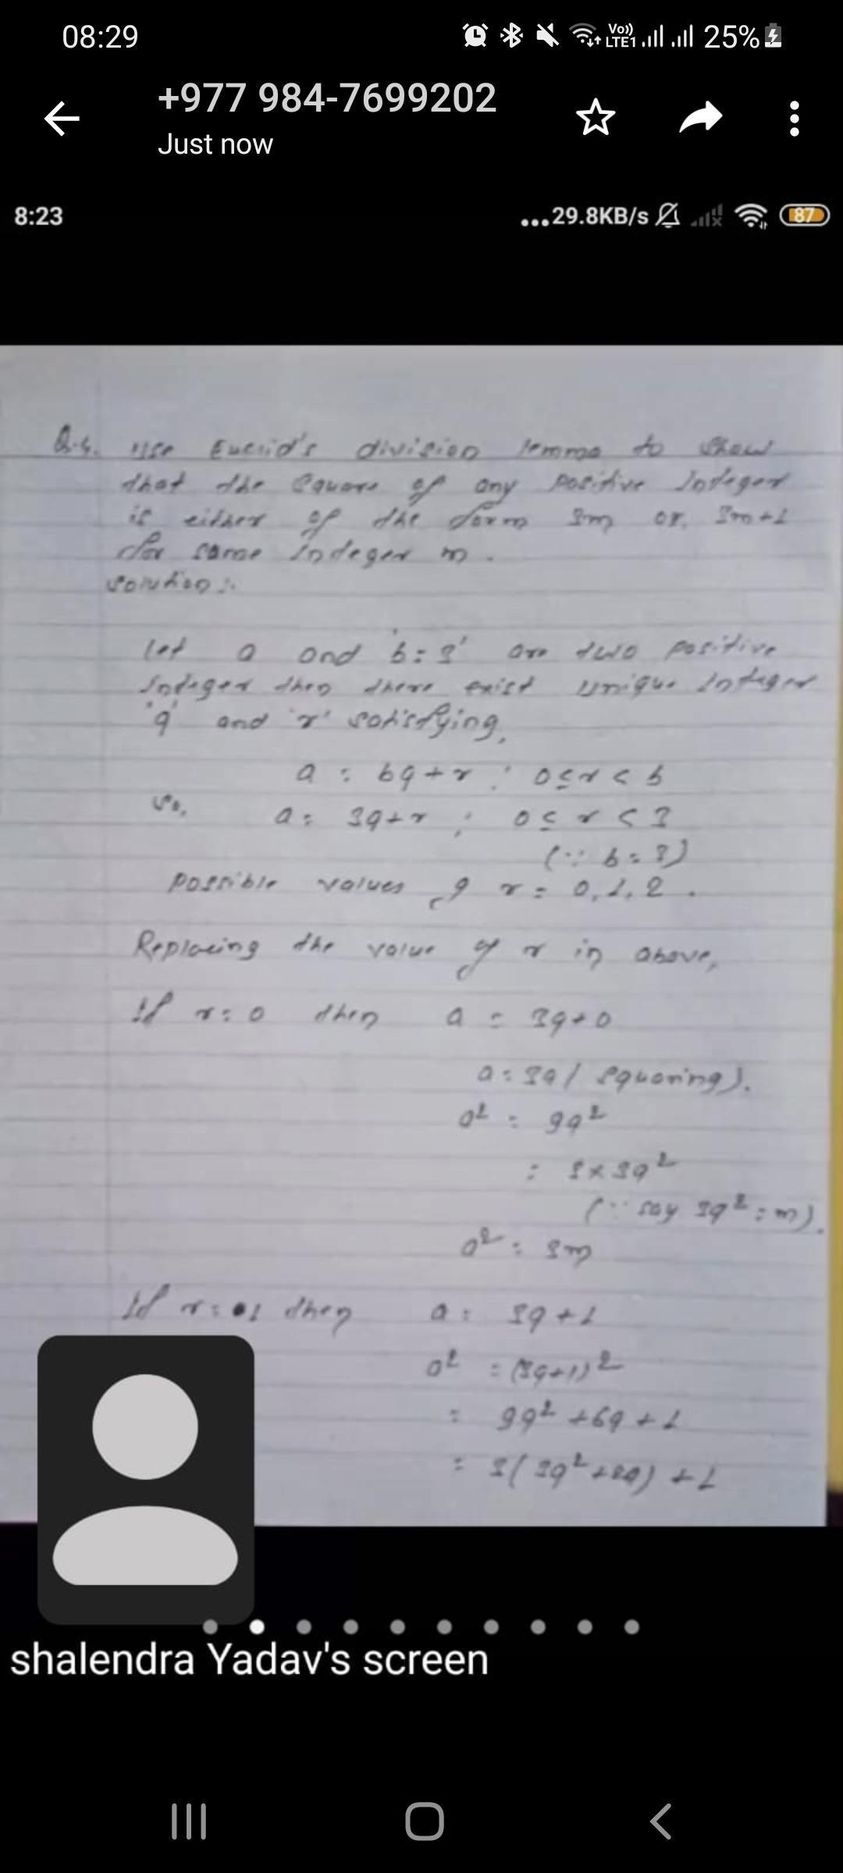 08:29
Vo)) LTE1 25%
+977 984-7699202
Just now
8:23
...29.8KB/s 87
Q.4. Use Euclid's division lemma to show
that the square of any positive Integer
is either of the form 3m or, 3m+1
for some Integer m.
Solution:
Let a and 'b=3' are two positive
Integer then there exist unique Integer
'q' and 'r' satisfying,
a = bq+r ; 0≤r<b
So,
a = 3q+r ; 0≤r<3
(∵ b=3)
Possible values of r = 0,1,2.
Replacing the value of r in above,
If r=0 then a = 3q+0
a=3q (squaring).
a² = 9q²
= 3×3q²
(∵ say 3q²=m).
a² = 3m
If r=1 then a = 3q+1
a² = (3q+1)²
= 9q²+6q+1
= 3(3q²+2q)+1
shalendra Yadav's screen